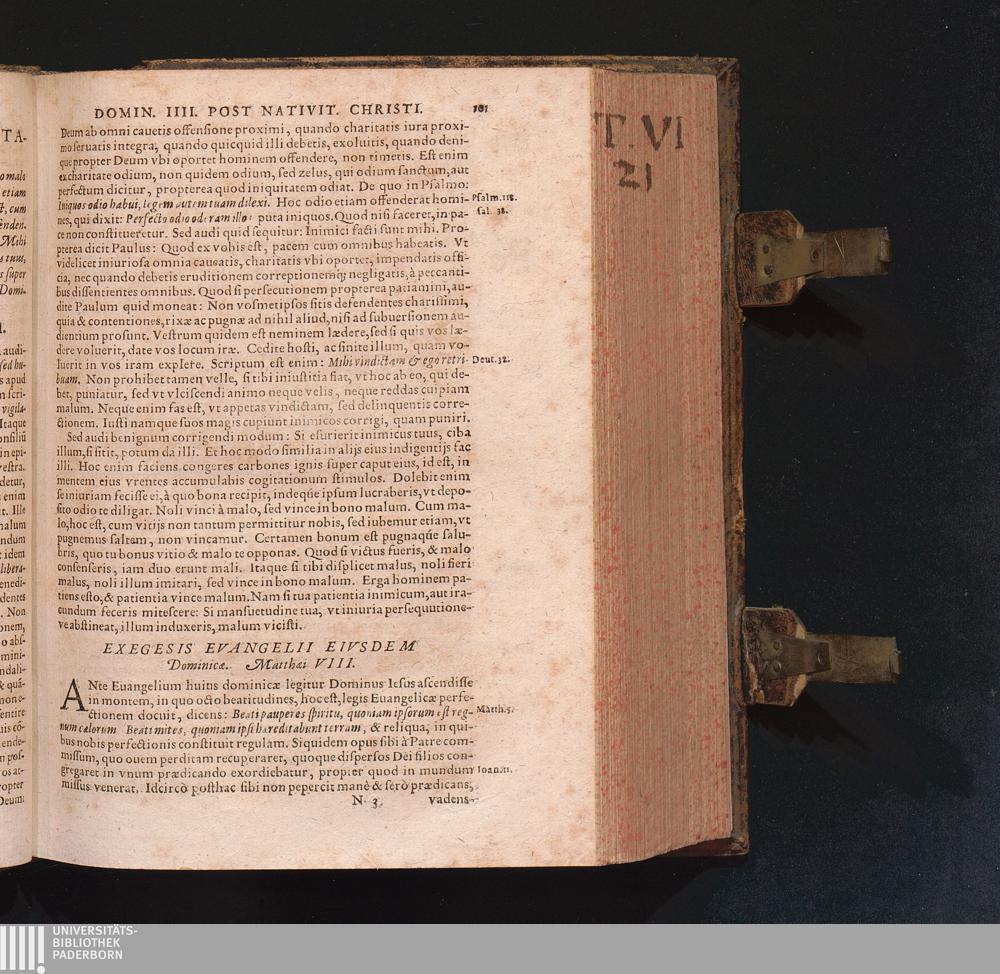 DOMIN. IIII. POST NATIVIT. CHRISTI. 101
Deum ab omni cauetis offensione proximi, quando charitatis iura proxi-
mo seruatis integra, quando quicquid illi debetis, exoluitis, quando deni-
que propter Deum vbi oportet hominem offendere, non timetis. Est enim
ex charitate odium, non quidem odium, sed zelus, qui odium sanctum, aut
perfectum dicitur, propterea quod iniquitatem odiat. De quo in Psalmo:
Iniquos odio habui, legem autem tuam dilexi. Hoc odio etiam offenderat homi- Psalm. 118.
nes, qui dixit: Perfecto odio oderam illos puta iniquos. Quod nisi faceret, in pa- sal. 38.
ce non constitueretur. Sed audi quid sequitur: Inimici facti sunt mihi. Pro-
pterea dicit Paulus: Quod ex vobis est, pacem cum omnibus habeatis. Vt
videlicet iniuriosa omnia caueatis, charitatis vbi oportet, impendatis offi-
cia, nec quando debetis eruditionem correptionemq́; negligatis, à peccanti-
bus dissentientes omnibus. Quod si persecutionem propterea patiamini, au-
dite Paulum quid moneat: Non vosmetipsos sitis defendentes charissimi,
quia & contentiones, rixæ ac pugnæ ad nihil aliud, nisi ad subuersionem au-
dientium prosunt. Vestrum quidem est neminem lædere, sed si quis vos læ-
dere voluerit, date vos locum iræ. Cedite hosti, ac sinite illum, quam vo-
luerit in vos iram explere. Scriptum est enim: Mihi vindictam & ego retri- Deut. 32.
buam. Non prohibet tamen velle, si tibi iniustitia fiat, vt hoc ab eo, qui de-
bet, puniatur, sed vt vlciscendi animo neque velis, neque reddas cuipiam
malum. Neque enim fas est, vt appetas vindictam, sed delinquentis corre-
ctionem. Iusti namque suos magis cupiunt inimicos corrigi, quam puniri.
Sed audi benignum corrigendi modum: Si esurierit inimicus tuus, ciba
illum, si sitit, potum da illi. Et hoc modo similia in alijs eius indigentijs fac
illi. Hoc enim faciens congeres carbones ignis super caput eius, id est, in
mentem eius vrentes accumulabis cogitationum stimulos. Dolebit enim
se iniuriam fecisse ei, à quo bona recipit, indeq́ue ipsum lucraberis, vt depo-
sito odio te diligat. Noli vinci à malo, sed vince in bono malum. Cum ma-
lo, hoc est, cum vitijs non tantum permittitur nobis, sed iubemur etiam, vt
pugnemus saltem, non vincamur. Certamen bonum est pugnaq́ue salu-
bris, quo tu bonus vitio & malo te opponas. Quod si victus fueris, & malo
consenseris, iam duo erunt mali. Itaque si tibi displicet malus, noli fieri
malus, noli illum imitari, sed vince in bono malum. Erga hominem pa-
tiens esto, & patientia vince malum. Nam si tua patientia inimicum, aut ira-
cundum feceris mitescere: Si mansuetudine tua, vt iniuria persequutione-
ve abstineat, illum induxeris, malum vicisti.
EXEGESIS EVANGELII EIVSDEM
Dominicæ. Matthæi VIII.
ANte Euangelium huius dominicæ legitur Dominus Iesus ascendisse
in montem, in quo octo beatitudines, hoc est, legis Euangelicæ perfe-
ctionem docuit, dicens: Beati pauperes spiritu, quoniam ipsorum est reg- Matth. 5.
num cælorum Beati mites, quoniam ipsi hæreditabunt terram, & reliqua, in qui-
bus nobis perfectionis constituit regulam. Siquidem opus sibi à Patre com-
missum, quo ouem perditam recuperaret, quoque dispersos Dei filios con-
gregaret in vnum prædicando exordiebatur, propter quod in mundum Ioan. 11.
missus venerat. Idcircò posthac sibi non pepercit manè & serò prædicans,
N 3 vadens
T. VI
21
UNIVERSITÄTS-
BIBLIOTHEK
PADERBORN